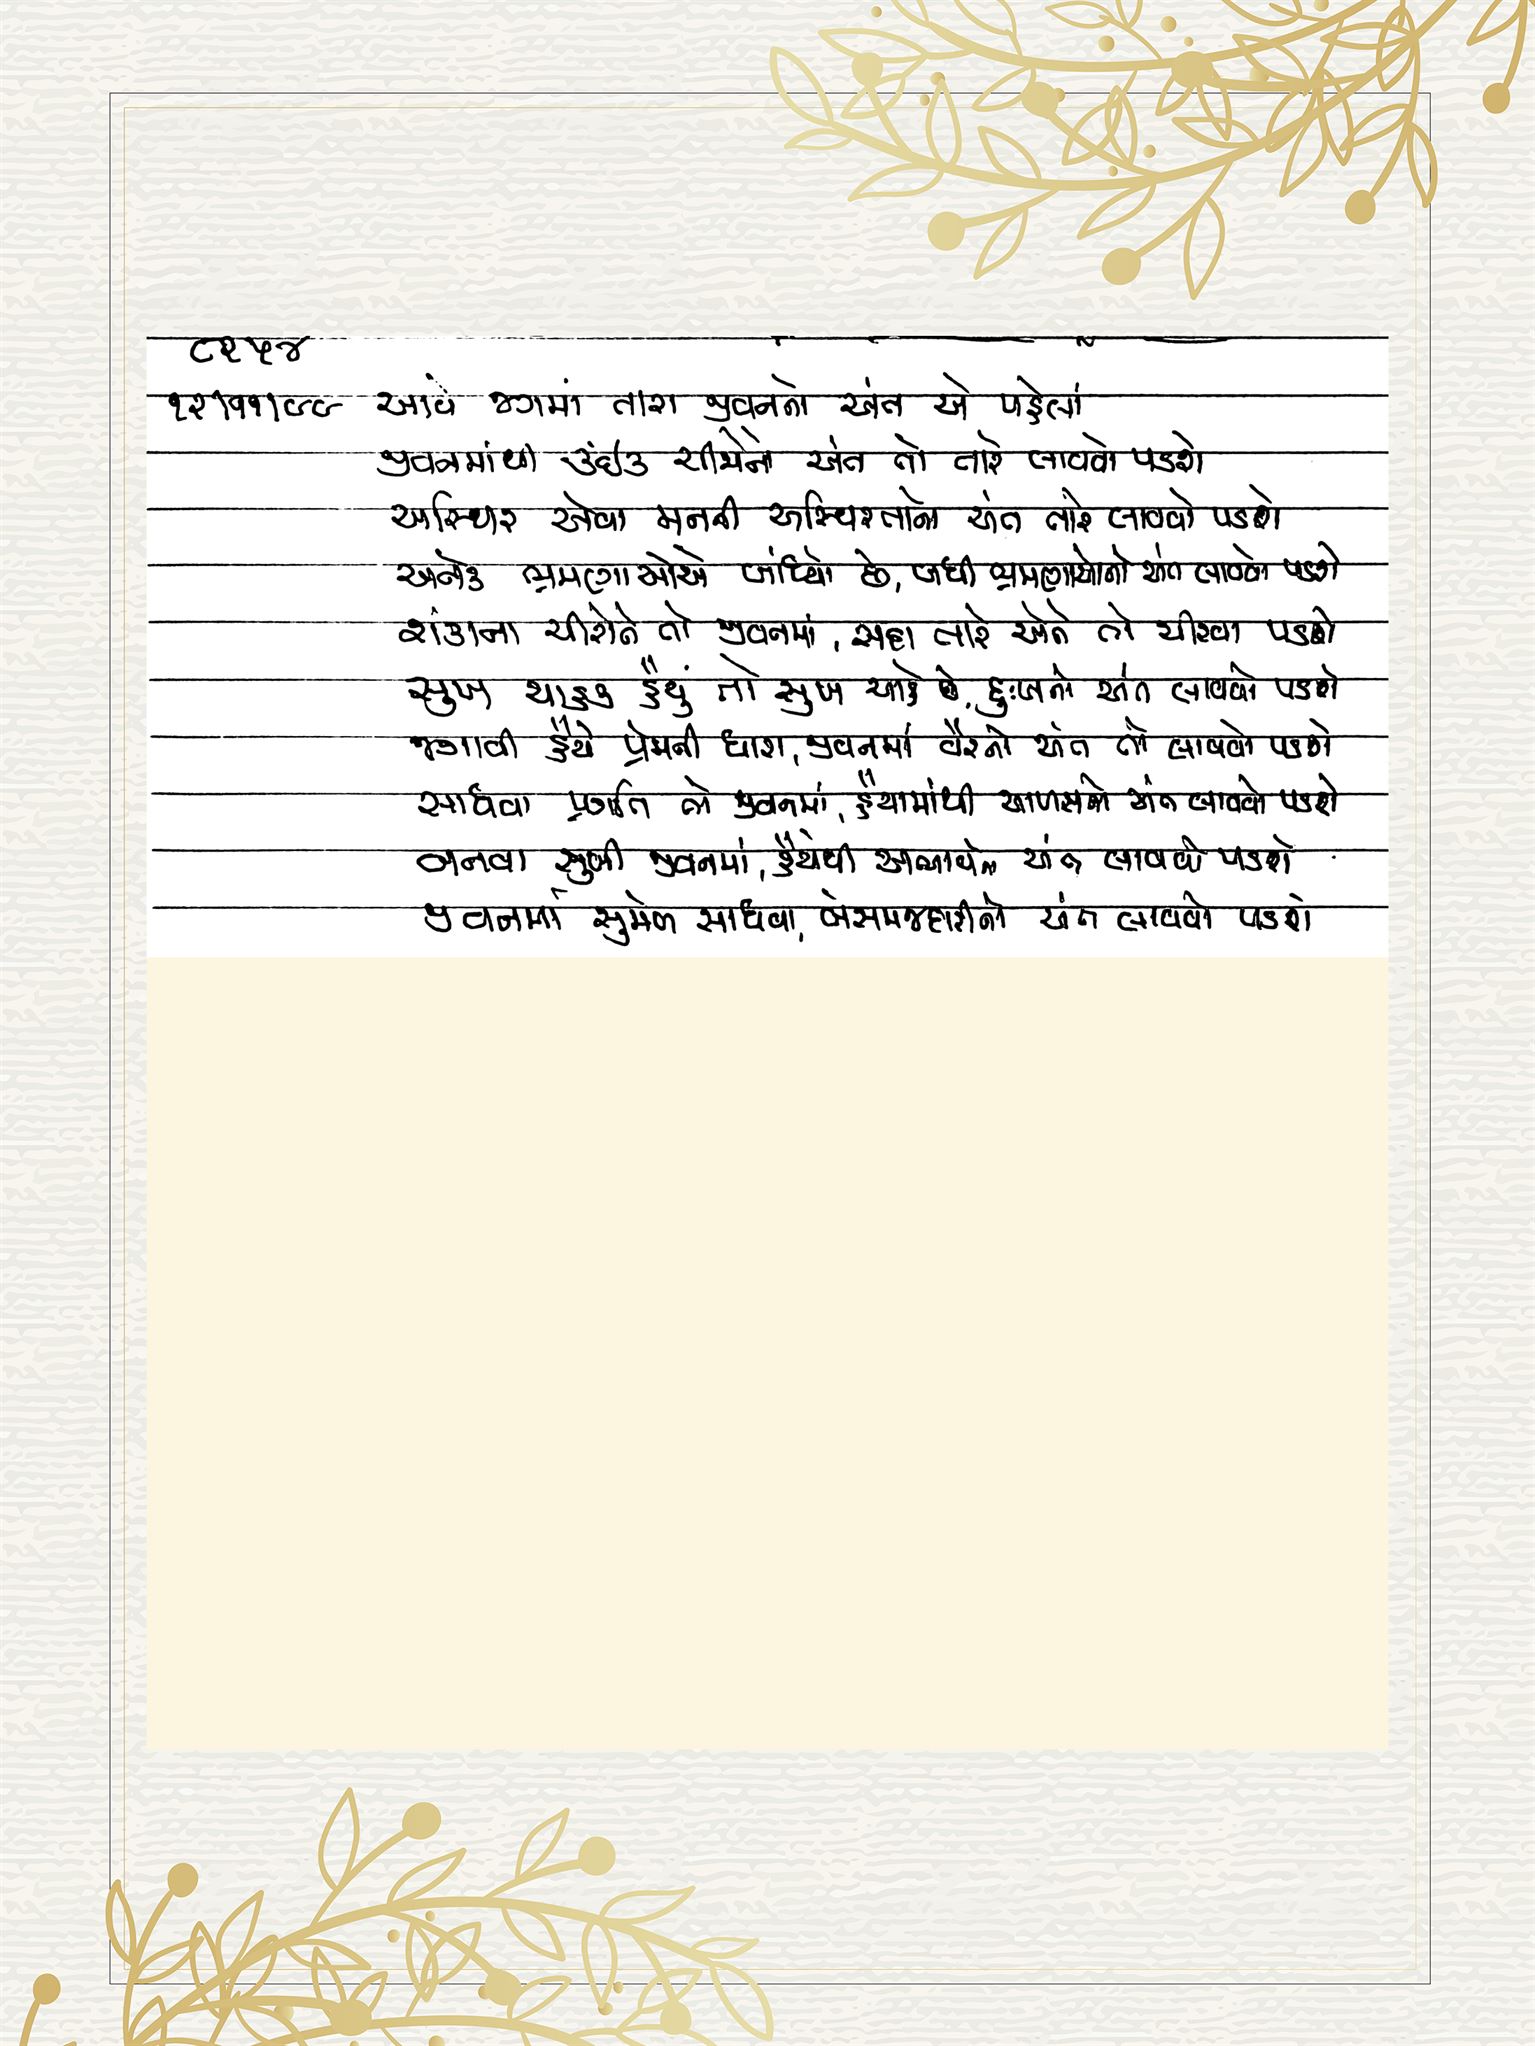 ૮૨૫૪
૧૨|૧૧|૯૯ આવે જગમાં તારા જીવનનો અંત એ પહેલાં
જીવનમાંથી કંઈક ચીજોનો અંત તો તારે લાવવો પડશે
અસ્થિર એવા મનની અસ્થિરતાનો અંત તારે લાવવો પડશે
અનેક ભ્રમણાઓએ બાંધ્યો છે, બધી ભ્રમણાઓનો અંત લાવવો પડશે
શંકાના ચીરોને તો જીવનમાં, સદા તારે એને તો ચીરવા પડશે
સુખ ચાહક હૈયું તો સુખ ચાહે છે, દુઃખનો અંત લાવવો પડશે
જગાવી હૈયે પ્રેમની ધારા, જીવનમાં વૈરનો અંત તો લાવવો પડશે
સાધવા પ્રગતિ તો જીવનમાં, હૈયામાંથી આળસનો અંત લાવવો પડશે
બનવા સુખી જીવનમાં, હૈયેથી અભાવોનો અંત લાવવો પડશે
જીવનમાં સુમેળ સાધવા, બેસમજદારીનો અંત લાવવો પડશે